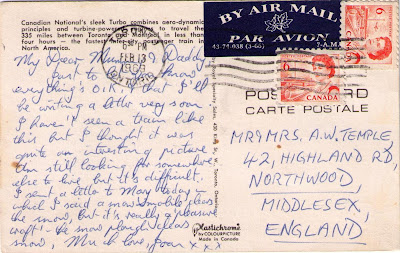 Canadian National's sleek Turbo combines aero-dynamic
principles and turbine-power
335 miles between Toronto and Montreal in less than
four hours – the fastest
North America.
My Dear Mum & Daddy
Just to know
everything's O.K. & that I'll
be writing a letter very soon
I haven't seen a train like
this but I thought it was
quite an interesting picture
Am still looking for somewhere
else to live but it's difficult.
I sent a letter to Mary today – in
which I said a snowmobile clears
the snow, but it's really a pleasure
craft! – the snow plough clears
snow, Much love, Joan x x x
FEB 13
ONTARIO
Plastichrome
by COLOURPICTURE
Made in Canada
BY AIR MAIL
PAR AVION
43-74-038 (3-66)
6
6
CANADA
POST CARD
CARTE POSTALE
MR & MRS. A.W. TEMPLE,
42, HIGHLAND RD,
NORTHWOOD,
MIDDLESEX,
ENGLAND